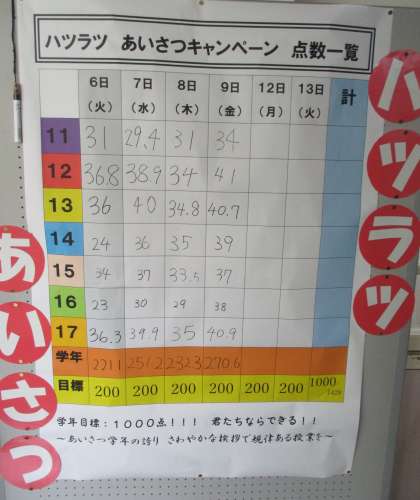 ハツラツ あいさつキャンペーン 点数一覧
6日 7日 8日 9日 12日 13日 計
(火) (水) (木) (金) (月) (火)
11 31 29.4 31 34
12 36.8 38.9 34 41
13 36 40 34.8 40.7
14 24 36 35 39
15 34 37 33.5 37
16 23 30 29 38
17 36.3 39.9 35 40.9
学年 221.1 251.2 232.3 270.6
目標 200 200 200 200 200 200 1000
学年目標:1000点!!! 君たちならできる!!
~あいさつ学年の誇り さわやかな挨拶で規律ある授業を~
ハツラツ
あいさつ